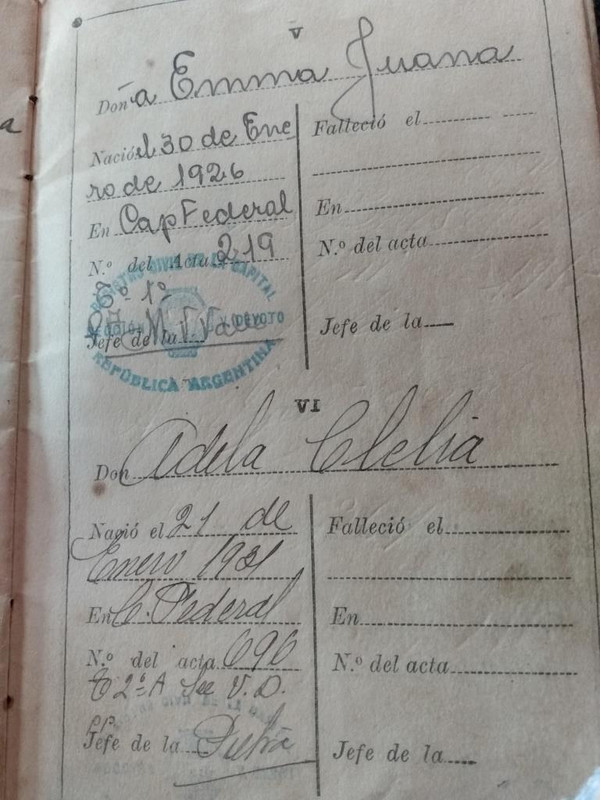 a
V
Doña Emma Juana
Nació el 30 de Ene
ro de 1926
En Cap Federal
N.º del Acta 219
Tº 1º
Jefe de la
REGISTRO CIVIL DE LA CAPITAL
DEVOTO
REPÚBLICA ARGENTINA
Falleció el
En
N.º del acta
Jefe de la
VI
Don Adela Clelia
Nació el 21 de
Enero 1931
En C. Federal
N.º del acta 696
T 2º A Sec V. D.
Jefe de la
Falleció el
En
N.º del acta
Jefe de la